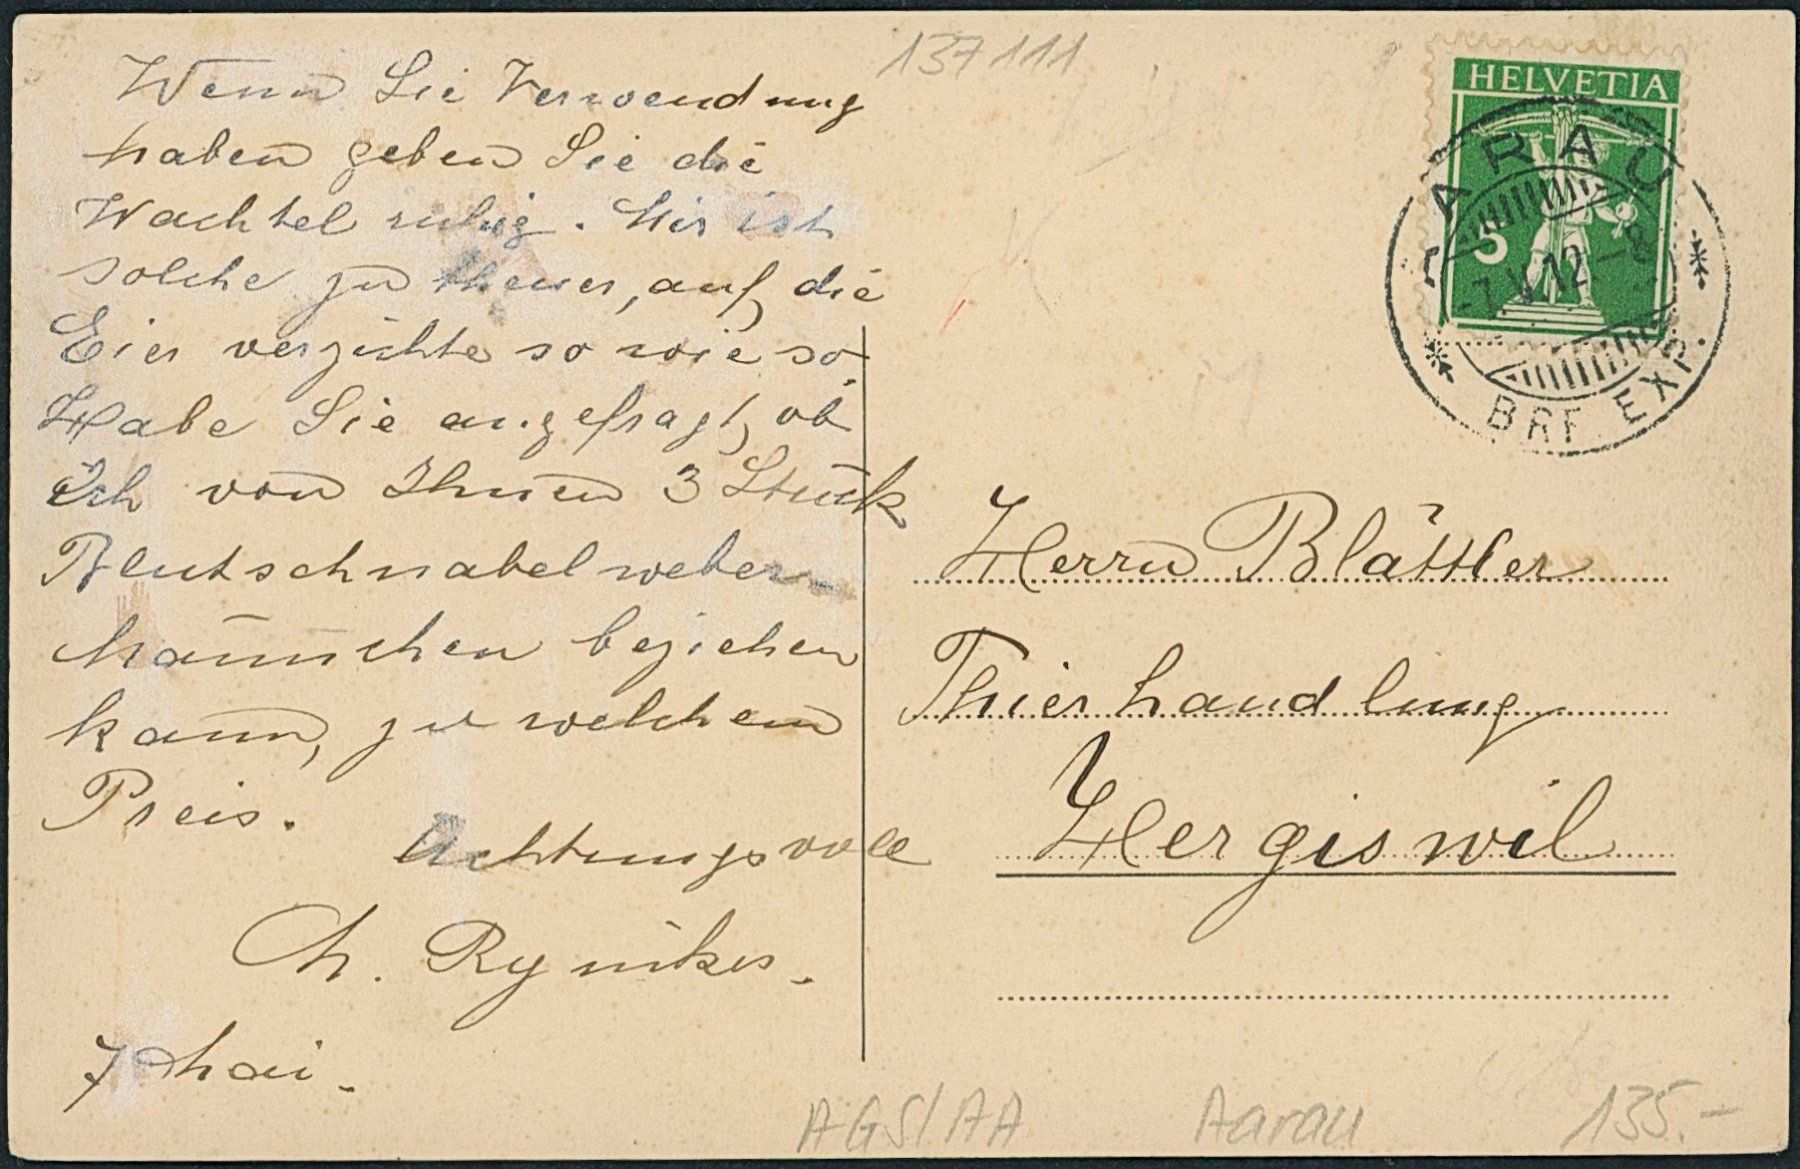 137111
Wenn Sie Verwendung
haben geben Sie die
Wachtel ruhig. Mir ist
solche zu theuer, auf die
Eier verzichte so wie so.
Habe Sie angefragt, ob
Ich von Ihnen 3 Stück
Blutschnabelweber-
männchen beziehen
kann, zu welchem
Preis.
Achtungsvoll
M. Rynikes.
7 Mai.
HELVETIA
5
AARAU
-7.V.12-8
BRF. EXP.
Herrn Blättler
Thierhandlung
Hergiswil
AGS/AA Aarau 135.-